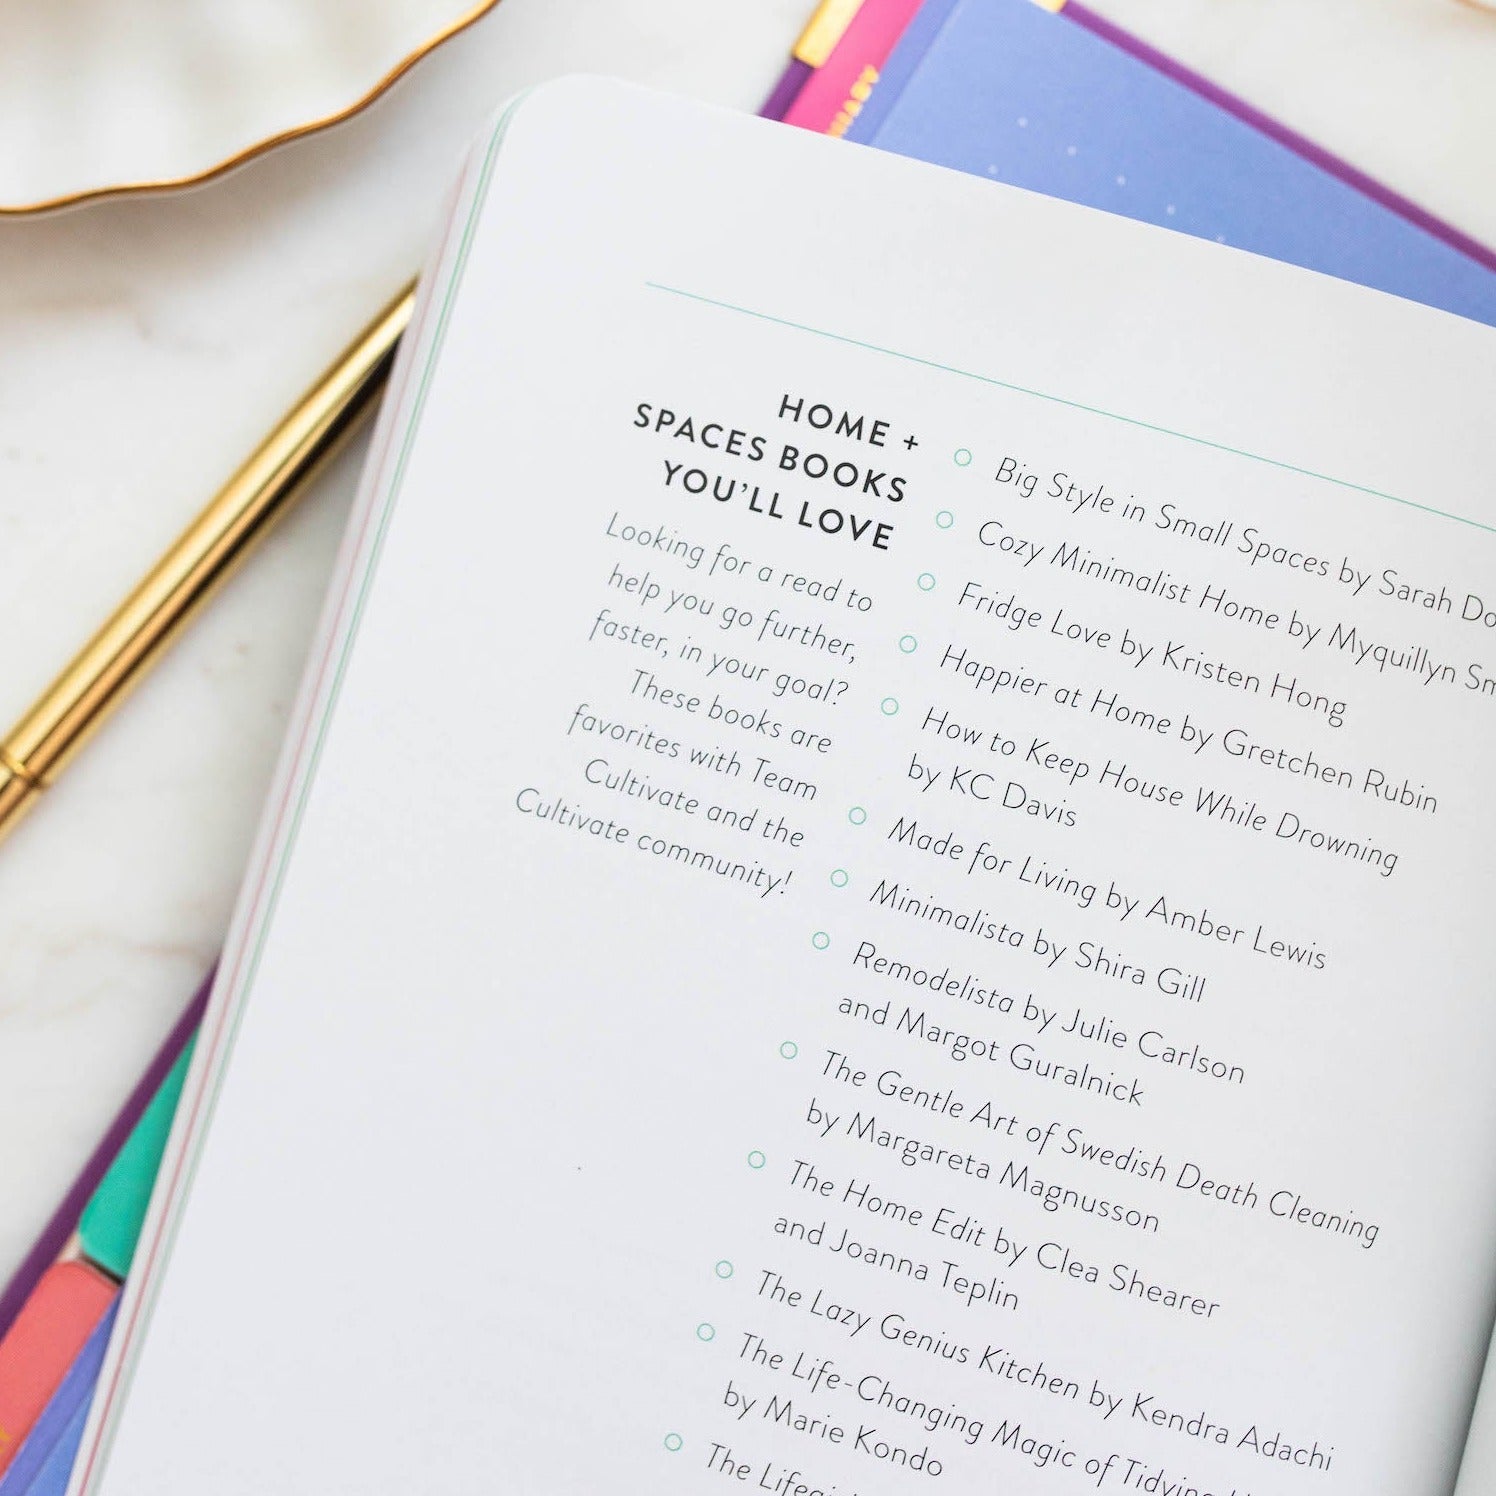 HOME +
SPACES BOOKS
YOU'LL LOVE
Looking for a read to
help you go further,
faster, in your goal?
These books are
favorites with Team
Cultivate and the
Cultivate community!
Big Style in Small Spaces by Sarah
Cozy Minimalist Home by Myquillyn
Fridge Love by Kristen Hong
Happier at Home by Gretchen Rubin
How to Keep House While Drowning
by KC Davis
Made for Living by Amber Lewis
Minimalista by Shira Gill
Remodelista by Julie Carlson
and Margot Guralnick
The Gentle Art of Swedish Death Cleaning
by Margareta Magnusson
The Home Edit by Clea Shearer
and Joanna Teplin
The Lazy Genius Kitchen by Kendra Adachi
The Life-Changing Magic of
by Marie Kondo
The